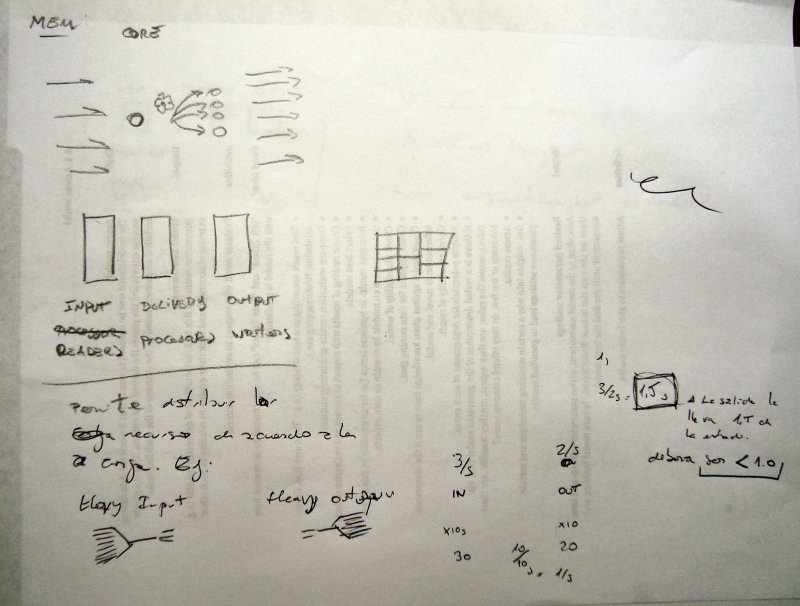 MEM
CORE
INPUT DELIVERY OUTPUT
READERS PROCESORES WRITERS
Permite distribuir los
recursos de acuerdo a la
carga. Ej:
Heavy Input
Heavy output
3/s
2/s
IN
OUT
x10s
x10
30
20
10/10s = 1/s
1,
3/2s = 1,5s
La salida le
lleva 1,5 de
la entrada.
debera ser < 1.0